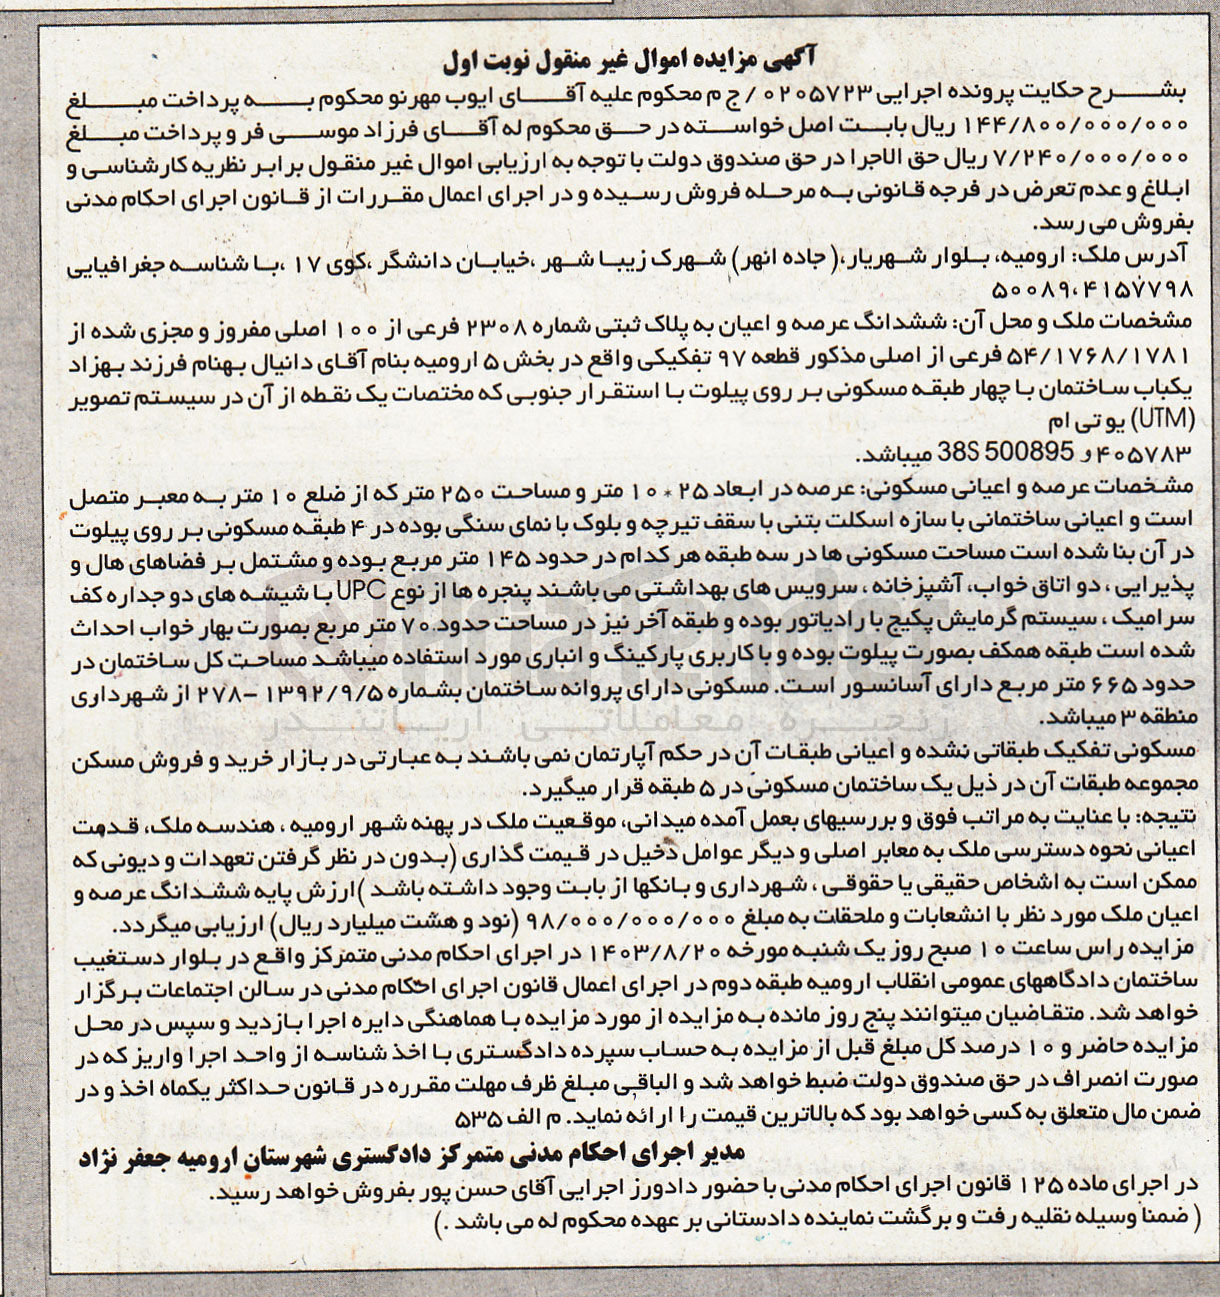 آگهی مزایده اموال غیر منقول نوبت اول
بشرح حکایت پرونده اجرایی ۰۲۰۵۷۲۳ / ج م محکوم علیه آقای ایوب مهرنو محکوم به پرداخت مبلغ
۱۴۴/۸۰۰/۰۰۰/۰۰۰ ریال بابت اصل خواسته در حق محکوم له آقای فرزاد موسی فر و پرداخت مبلغ
۷/۲۴۰/۰۰۰/۰۰۰ ریال حق الاجرا در حق صندوق دولت با توجه به ارزیابی اموال غیر منقول برابر نظریه کارشناسی و
ابلاغ و عدم تعرض در فرجه قانونی به مرحله فروش رسیده و در اجرای اعمال مقررات از قانون اجرای احکام مدنی
بفروش می رسد.
آدرس ملک: ارومیه، بلوار شهریار،( جاده انهر) شهرک زیبا شهر ،خیابان دانشگر ،کوی ۱۷ ،با شناسه جغرافیایی
۵۰۰۸۹،۴۱۵۷۷۹۸
مشخصات ملک و محل آن: ششدانگ عرصه و اعیان به پلاک ثبتی شماره ۲۳۰۸ فرعی از ۱۰۰ اصلی مفروز و مجزی شده از
۵۴/۱۷۶۸/۱۷۸۱ فرعی از اصلی مذکور قطعه ۹۷ تفکیکی واقع در بخش ۵ ارومیه بنام آقای دانیال بهنام فرزند بهزاد
یکباب ساختمان با چهار طبقه مسکونی بر روی پیلوت با استقرار جنوبی که مختصات یک نقطه از آن در سیستم تصویر
(UTM) یو تی ام
۴۰۵۷۸۳ و 38S 500895 میباشد.
مشخصات عرصه و اعیانی مسکونی: عرصه در ابعاد ۲۵*۱۰ متر و مساحت ۲۵۰ متر که از ضلع ۱۰ متر به معبر متصل
است و اعیانی ساختمانی با سازه اسکلت بتنی با سقف تیرچه و بلوک با نمای سنگی بوده در ۴ طبقه مسکونی بر روی پیلوت
در آن بنا شده است مساحت مسکونی ها در سه طبقه هر کدام در حدود ۱۴۵ متر مربع بوده و مشتمل بر فضاهای هال و
پذیرایی ، دو اتاق خواب، آشپزخانه ، سرویس های بهداشتی می باشند پنجره ها از نوع UPC با شیشه های دو جداره کف
سرامیک ، سیستم گرمایش پکیج با رادیاتور بوده و طبقه آخر نیز در مساحت حدود ۷۰ متر مربع بصورت بهار خواب احداث
شده است طبقه همکف بصورت پیلوت بوده و با کاربری پارکینگ و انباری مورد استفاده میباشد مساحت کل ساختمان در
حدود ۶۶۵ متر مربع دارای آسانسور است. مسکونی دارای پروانه ساختمان بشماره ۱۳۹۲/۹/۵ -۲۷۸ از شهرداری
منطقه ۳ میباشد.
مسکونی تفکیک طبقاتی نشده و اعیانی طبقات آن در حکم آپارتمان نمی باشند به عبارتی در بازار خرید و فروش مسکن
مجموعه طبقات آن در ذیل یک ساختمان مسکونی در ۵ طبقه قرار میگیرد.
نتیجه: با عنایت به مراتب فوق و بررسیهای بعمل آمده میدانی، موقعیت ملک در پهنه شهر ارومیه ، هندسه ملک، قدمت
اعیانی نحوه دسترسی ملک به معابر اصلی و دیگر عوامل دخیل در قیمت گذاری (بدون در نظر گرفتن تعهدات و دیونی که
ممکن است به اشخاص حقیقی یا حقوقی ، شهرداری و بانکها از بابت وجود داشته باشد )ارزش پایه ششدانگ عرصه و
اعیان ملک مورد نظر با انشعابات و ملحقات به مبلغ ۹۸/۰۰۰/۰۰۰/۰۰۰ (نود و هشت میلیارد ریال) ارزیابی میگردد.
مزایده راس ساعت ۱۰ صبح روز یک شنبه مورخه ۱۴۰۳/۸/۲۰ در اجرای احکام مدنی متمرکز واقع در بلوار دستغیب
ساختمان دادگاههای عمومی انقلاب ارومیه طبقه دوم در اجرای اعمال قانون اجرای احکام مدنی در سالن اجتماعات برگزار
خواهد شد. متقاضیان میتوانند پنج روز مانده به مزایده از مورد مزایده با هماهنگی دایره اجرا بازدید و سپس در محل
مزایده حاضر و ۱۰ درصد کل مبلغ قبل از مزایده به حساب سپرده دادگستری با اخذ شناسه از واحد اجرا واریز که در
صورت انصراف در حق صندوق دولت ضبط خواهد شد و الباقی مبلغ ظرف مهلت مقرره در قانون حداکثر یکماه اخذ و در
ضمن مال متعلق به کسی خواهد بود که بالاترین قیمت را ارائه نماید. م الف ۵۳۵
مدیر اجرای احکام مدنی متمرکز دادگستری شهرستان ارومیه جعفر نژاد
در اجرای ماده ۱۲۵ قانون اجرای احکام مدنی با حضور دادورز اجرایی آقای حسن پور بفروش خواهد رسید.
( ضمنا وسیله نقلیه رفت و برگشت نماینده دادستانی بر عهده محکوم له می باشد .)
زنجیره معاملاتی آریاتندر